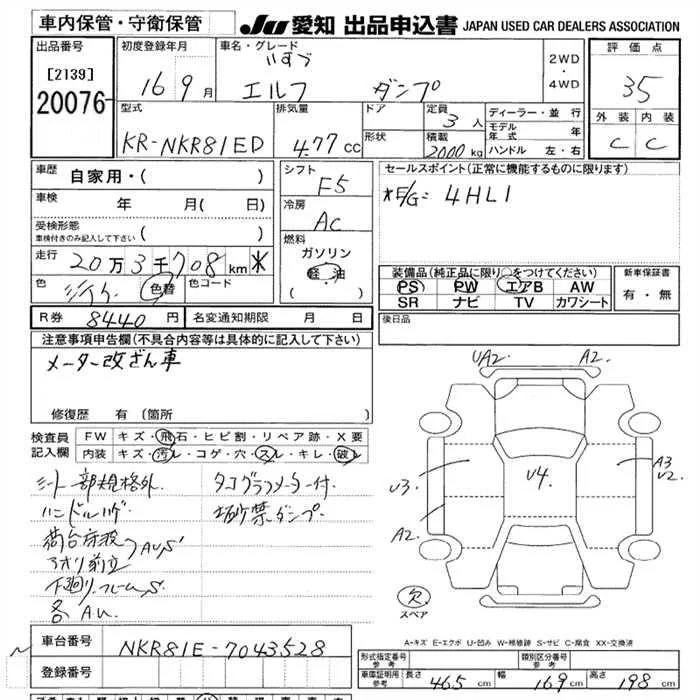 車内保管・守衛保管
JU 愛知 出品申込書 JAPAN USED CAR DEALERS ASSOCIATION
出品番号
[2139]
20076
初度登録年月
16 9月
車名・グレード
いすゞ
エルフ ダンプ
2WD
・
4WD
評価点
35
外装 内装
C C
型式
KR-NKR81ED
排気量
4.77 cc
ドア
形状
定員
3人
積載
2000kg
ディーラー・並行
モデル年式 年
ハンドル 左・右
車歴
自家用・( )
車検
年 月( 日)
受検形態
車検付きのみ記入して下さい ( )
走行
20万3千708km *
色
色替
色コード
シフト
F5
冷房
AC
燃料
ガソリン
軽・油
( )
セールスポイント(正常に機能するものに限ります)
*E/G=4HL1
装備品(純正品に限り○をつけてください)
PS PW エアB AW
SR ナビ TV カワシート
新車保証書
有・無
R券 8440円
名変通知期限 月 日
後日品
注意事項申告欄(不具合内容等は具体的に記入して下さい)
メーター改ざん車
修復歴 有 (箇所
検査員
記入欄
FW キズ・飛石・ヒビ割・リペア跡・X要
内装 キズ・汚レ・コゲ・穴・スレ・キレ・破レ
シート一部規格外
タコグラフメーター付
ハンドルハゲ
荷台床板
アオリ前立 AUS
下廻り.フレームS
各AU
UA2. A2.
U3. U4. A3 U2.
A2.
欠
スペア
A-キズ E-エクボ U-凹み W-補修跡 S-サビ C-腐食 XX-交換済
車台番号
NKR81E-7043528
登録番号
形式指定番号
参考
類別区分番号
参考
車庫証明用
参考
長さ 465cm 幅 169cm 高さ 198cm